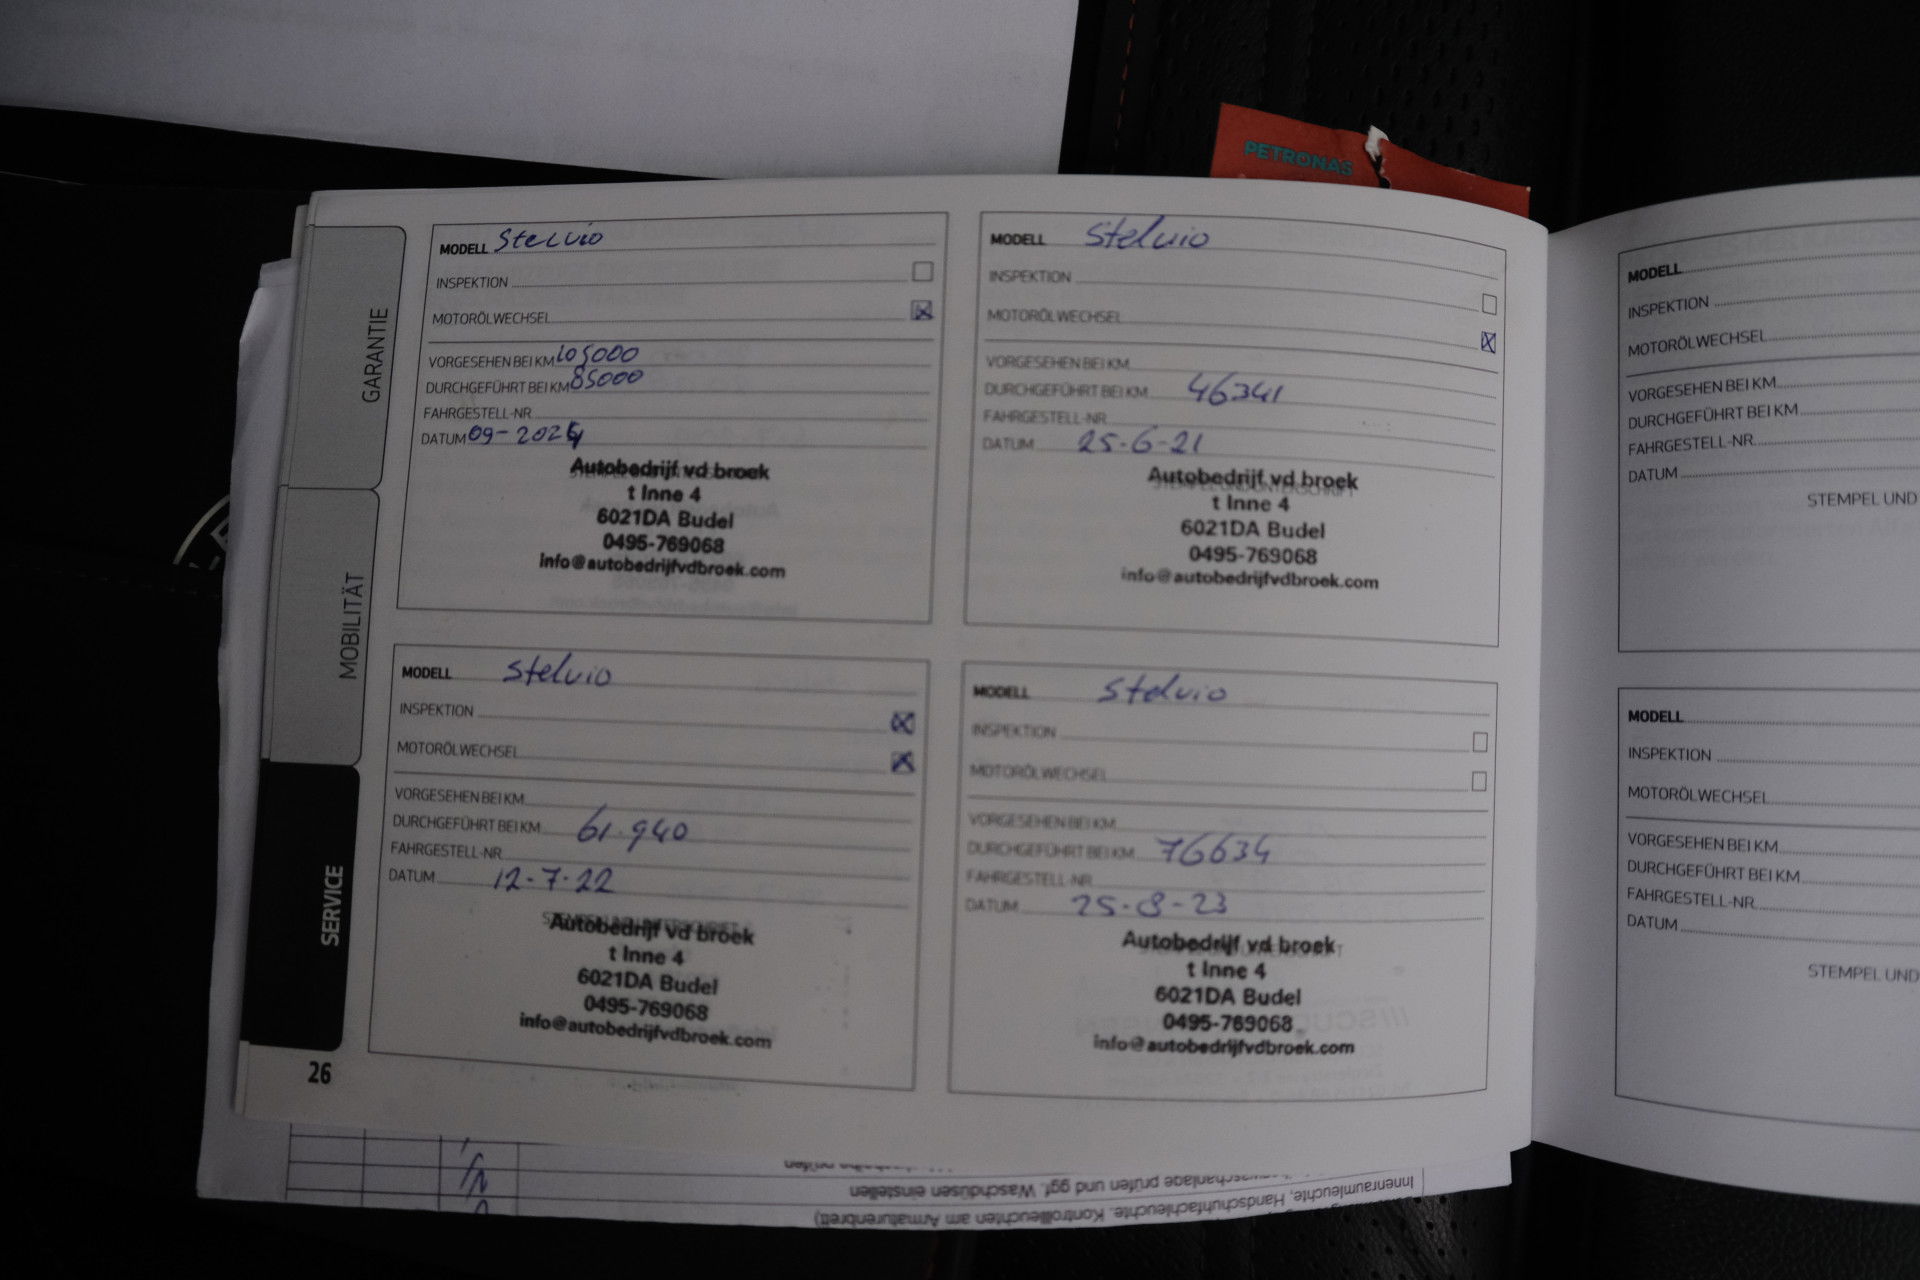 PETRONAS
GARANTIE
MOBILITÄT
SERVICE
26
MODELL Stelvio
INSPEKTION
MOTORÖLWECHSEL
VORGESEHEN BEI KM 105000
DURCHGEFÜHRT BEI KM 85000
FAHRGESTELL-NR.
DATUM 09-2024
Autobedrijf vd broek
t Inne 4
6021DA Budel
0495-769068
info@autobedrijfvdbroek.com
MODELL Stelvio
INSPEKTION
MOTORÖLWECHSEL
VORGESEHEN BEI KM
DURCHGEFÜHRT BEI KM 46341
FAHRGESTELL-NR
DATUM 25-6-21
STEMPEL UND UNTERSCHRIFT
Autobedrijf vd broek
t Inne 4
6021DA Budel
0495-769068
info@autobedrijfvdbroek.com
MODELL Stelvio
INSPEKTION
MOTORÖLWECHSEL
VORGESEHEN BEI KM
DURCHGEFÜHRT BEI KM 61.940
FAHRGESTELL-NR.
DATUM 12-7-22
STEMPEL UND UNTERSCHRIFT
Autobedrijf vd broek
t Inne 4
6021DA Budel
0495-769068
info@autobedrijfvdbroek.com
MODELL Stelvio
INSPEKTION
MOTORÖLWECHSEL
VORGESEHEN BEI KM
DURCHGEFÜHRT BEI KM 76634
FAHRGESTELL-NR
DATUM 25-8-23
Autobedrijf vd broek
t Inne 4
6021DA Budel
0495-769068
info@autobedrijfvdbroek.com
MODELL
INSPEKTION
MOTORÖLWECHSEL
VORGESEHEN BEI KM
DURCHGEFÜHRT BEI KM
FAHRGESTELL-NR.
DATUM
STEMPEL UND
MODELL
INSPEKTION
MOTORÖLWECHSEL
VORGESEHEN BEI KM
DURCHGEFÜHRT BEI KM
FAHRGESTELL-NR.
DATUM
STEMPEL UND
Innenraumleuchte, Handschuhfachleuchte, Kontrollleuchten am Armaturenbrett)
prüfen und ggf. Waschdüsen einstellen
prüfen